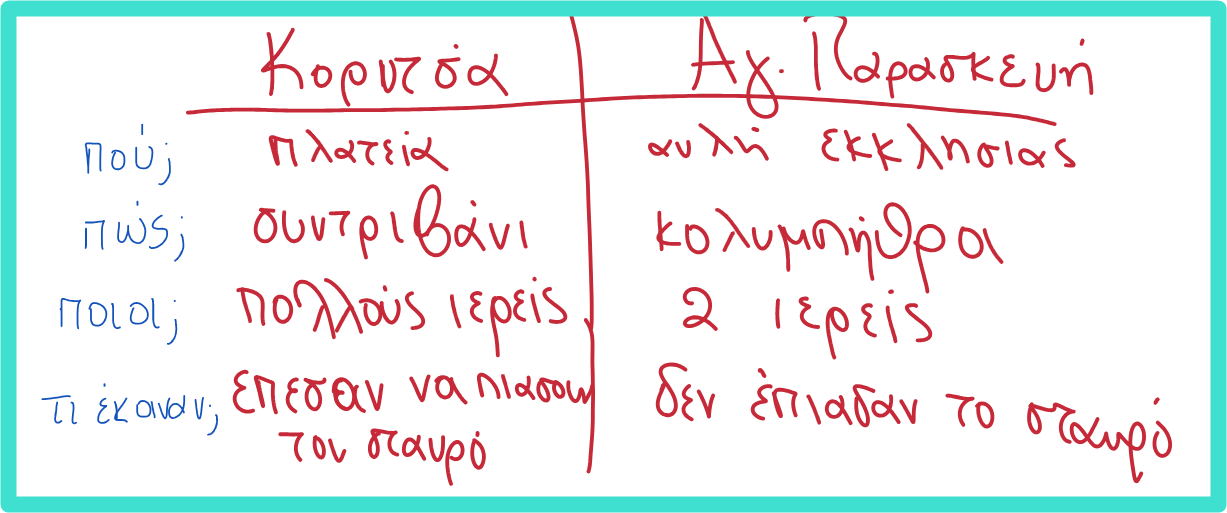 Κορυτσά Αγ. Παρασκευή
πού; πλατεία αυλή εκκλησιας
πώς; συντριβάνι κολυμπήθροι
ποιοι; πολλούς ιερείς 2 ιερείς
τι έκαιναν; έπεσαν να πιασουν δεν έπιαδαν το σταυρό
τον σταυρό